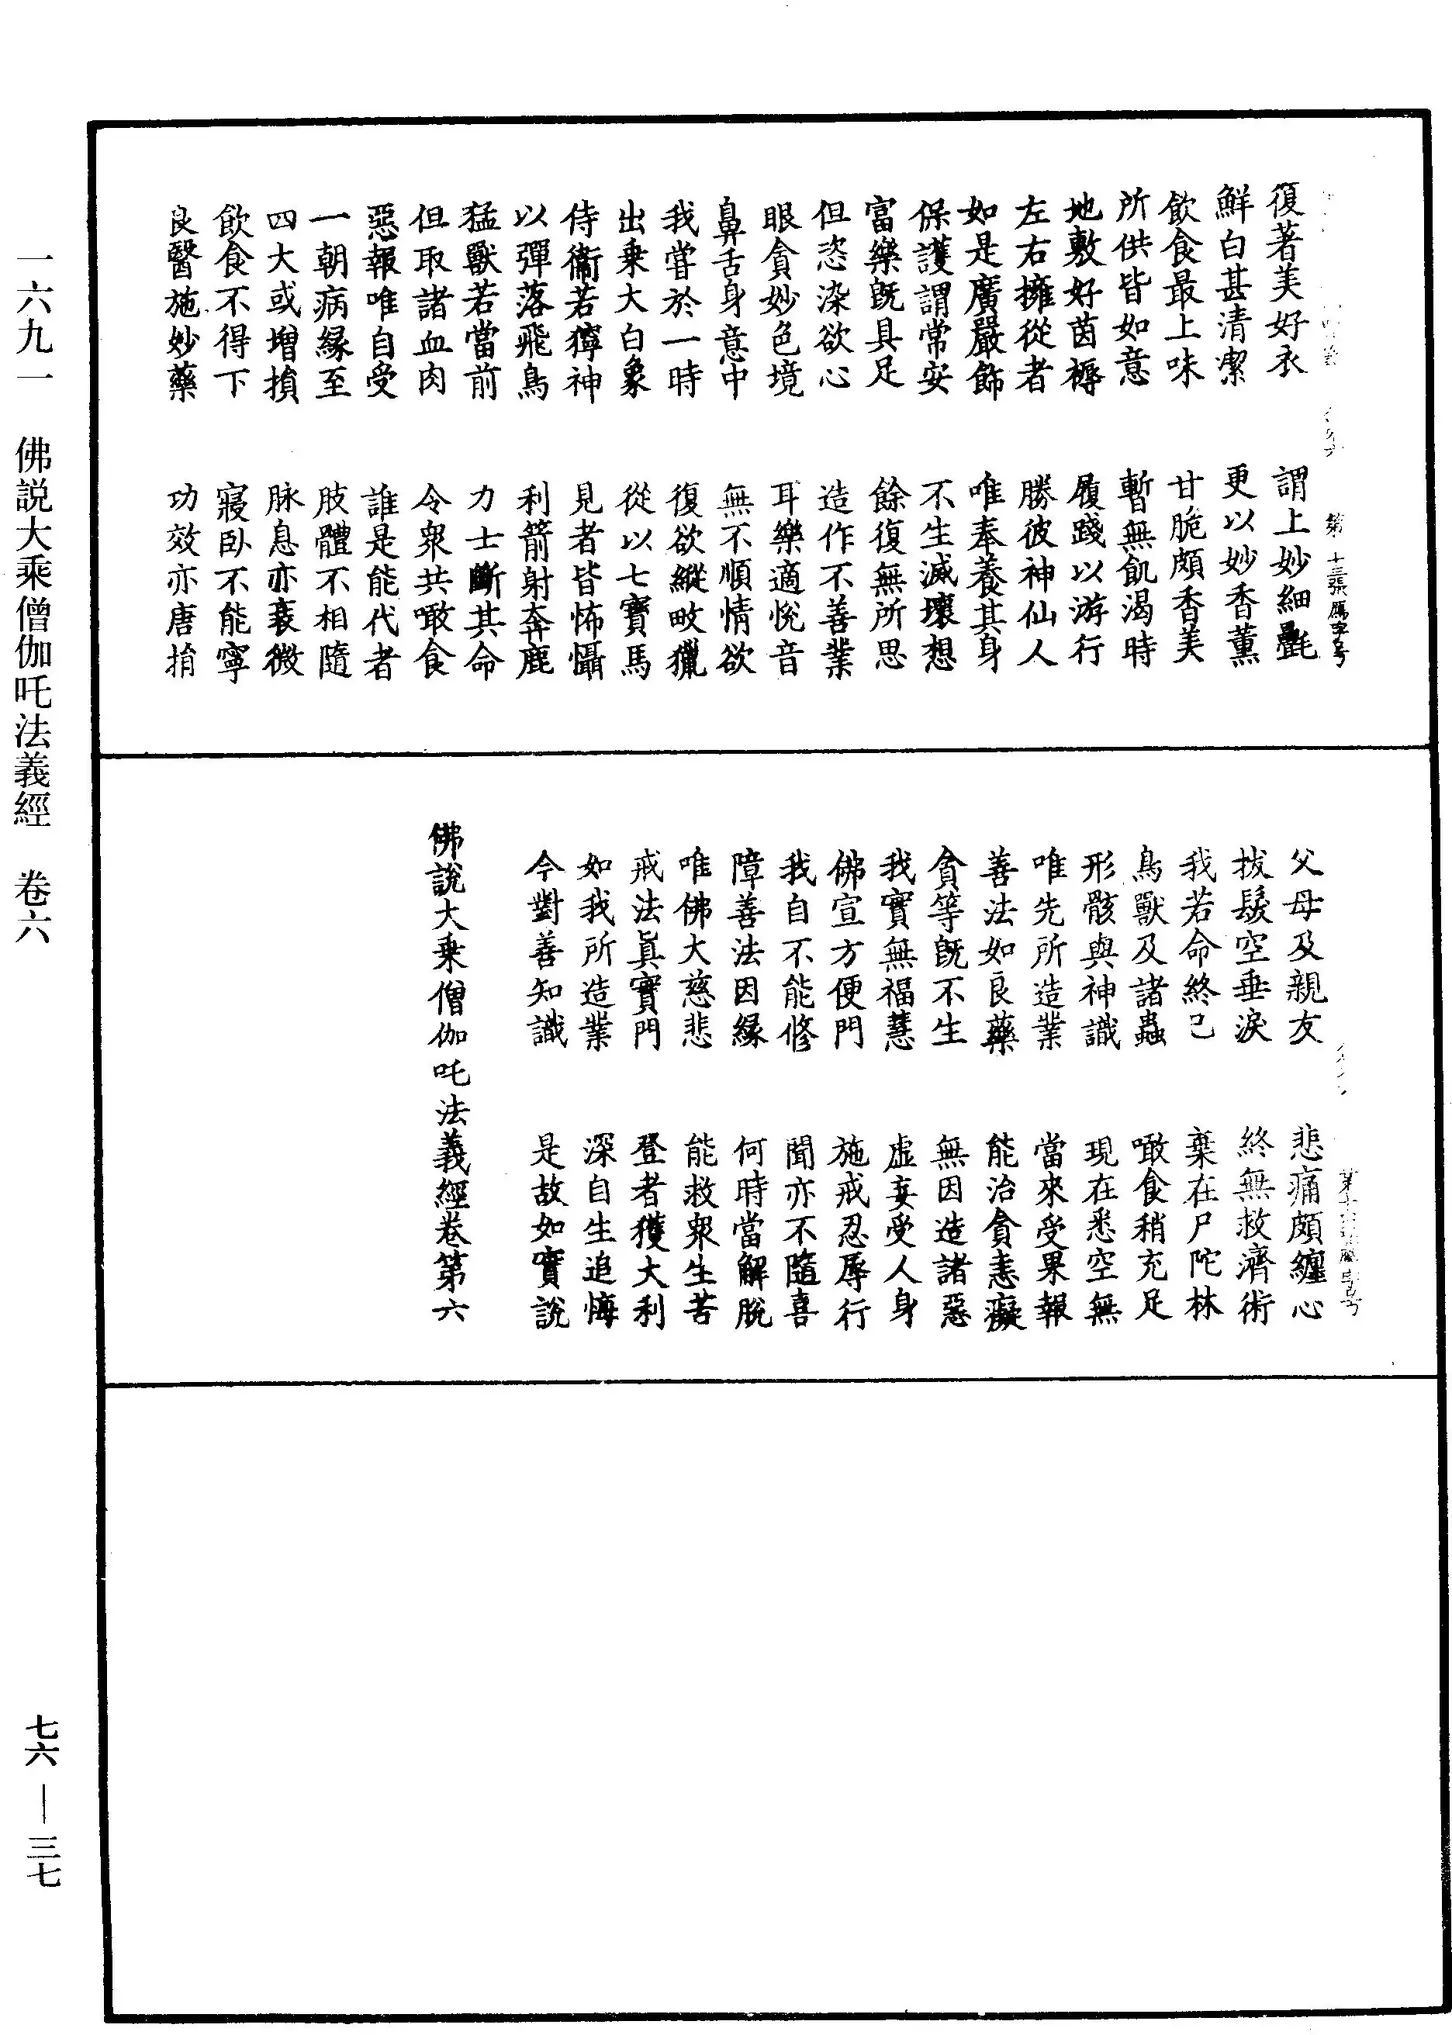 復著美好衣　謂上妙細㲲
鮮白甚清潔　更以妙香薰
飲食最上味　甘脆頗香美
所供皆如意　暫無飢渴時
地敷好茵褥　履踐以游行
左右擁從者　勝彼神仙人
如是廣嚴飾　唯奉養其身
保護謂常安　不生滅壞想
富樂既具足　餘復無所思
但恣染欲心　造作不善業
眼貪妙色境　耳樂適悅音
鼻舌身意中　無不順情欲
我嘗於一時　復欲縱畋獵
出乘大白象　從以七寶馬
侍衞若獰神　見者皆怖懾
以彈落飛鳥　利箭射奔鹿
猛獸若當前　力士斷其命
但取諸血肉　令衆共噉食
惡報唯自受　誰是能代者
一朝病緣至　肢體不相隨
四大或增損　脉息亦衰微
飲食不得下　寢臥不能寧
良醫施妙藥　功效亦唐捐
父母及親友　悲痛頗纏心
拔髮空垂淚　終無救濟術
我若命終已　棄在尸陀林
鳥獸及諸蟲　噉食稍充足
形骸與神識　現在悉空無
唯先所造業　當來受果報
善法如良藥　能治貪恚癡
貪等既不生　無因造諸惡
我實無福慧　虛妄受人身
佛宣方便門　施戒忍辱行
我自不能修　聞亦不隨喜
障善法因緣　何時當解脫
唯佛大慈悲　能救衆生苦
戒法眞實門　登者獲大利
如我所造業　深自生追悔
今對善知識　是故如實說
佛說大乘僧伽吒法義經卷第六
一六九一　佛説大乘僧伽吒法義經　卷六
七六—三七